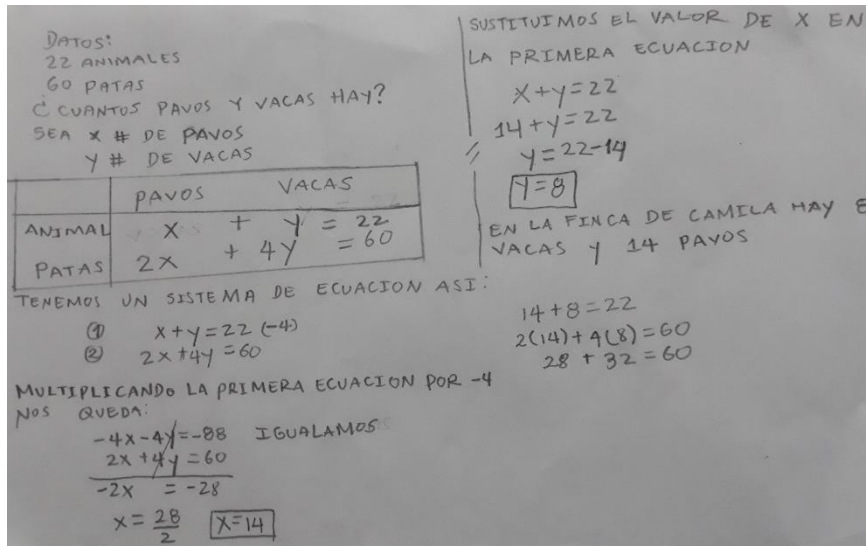 DATOS:
22 ANIMALES
60 PATAS
¿ CUANTOS PAVOS Y VACAS HAY?
SEA X # DE PAVOS
Y # DE VACAS
PAVOS VACAS
ANIMAL X + Y = 22
PATAS 2X + 4Y = 60
TENEMOS UN SISTEMA DE ECUACION ASI:
① X+Y=22 (-4)
② 2X+4Y=60
MULTIPLICANDO LA PRIMERA ECUACION POR -4
NOS QUEDA:
-4X-4Y=-88 IGUALAMOS
2X+4Y=60
-2X = -28
X = 28/2 X=14
SUSTITUIMOS EL VALOR DE X EN
LA PRIMERA ECUACION
X+Y=22
14+Y=22
// Y=22-14
Y=8
EN LA FINCA DE CAMILA HAY 8
VACAS Y 14 PAVOS
14+8=22
2(14)+4(8)=60
28+32=60